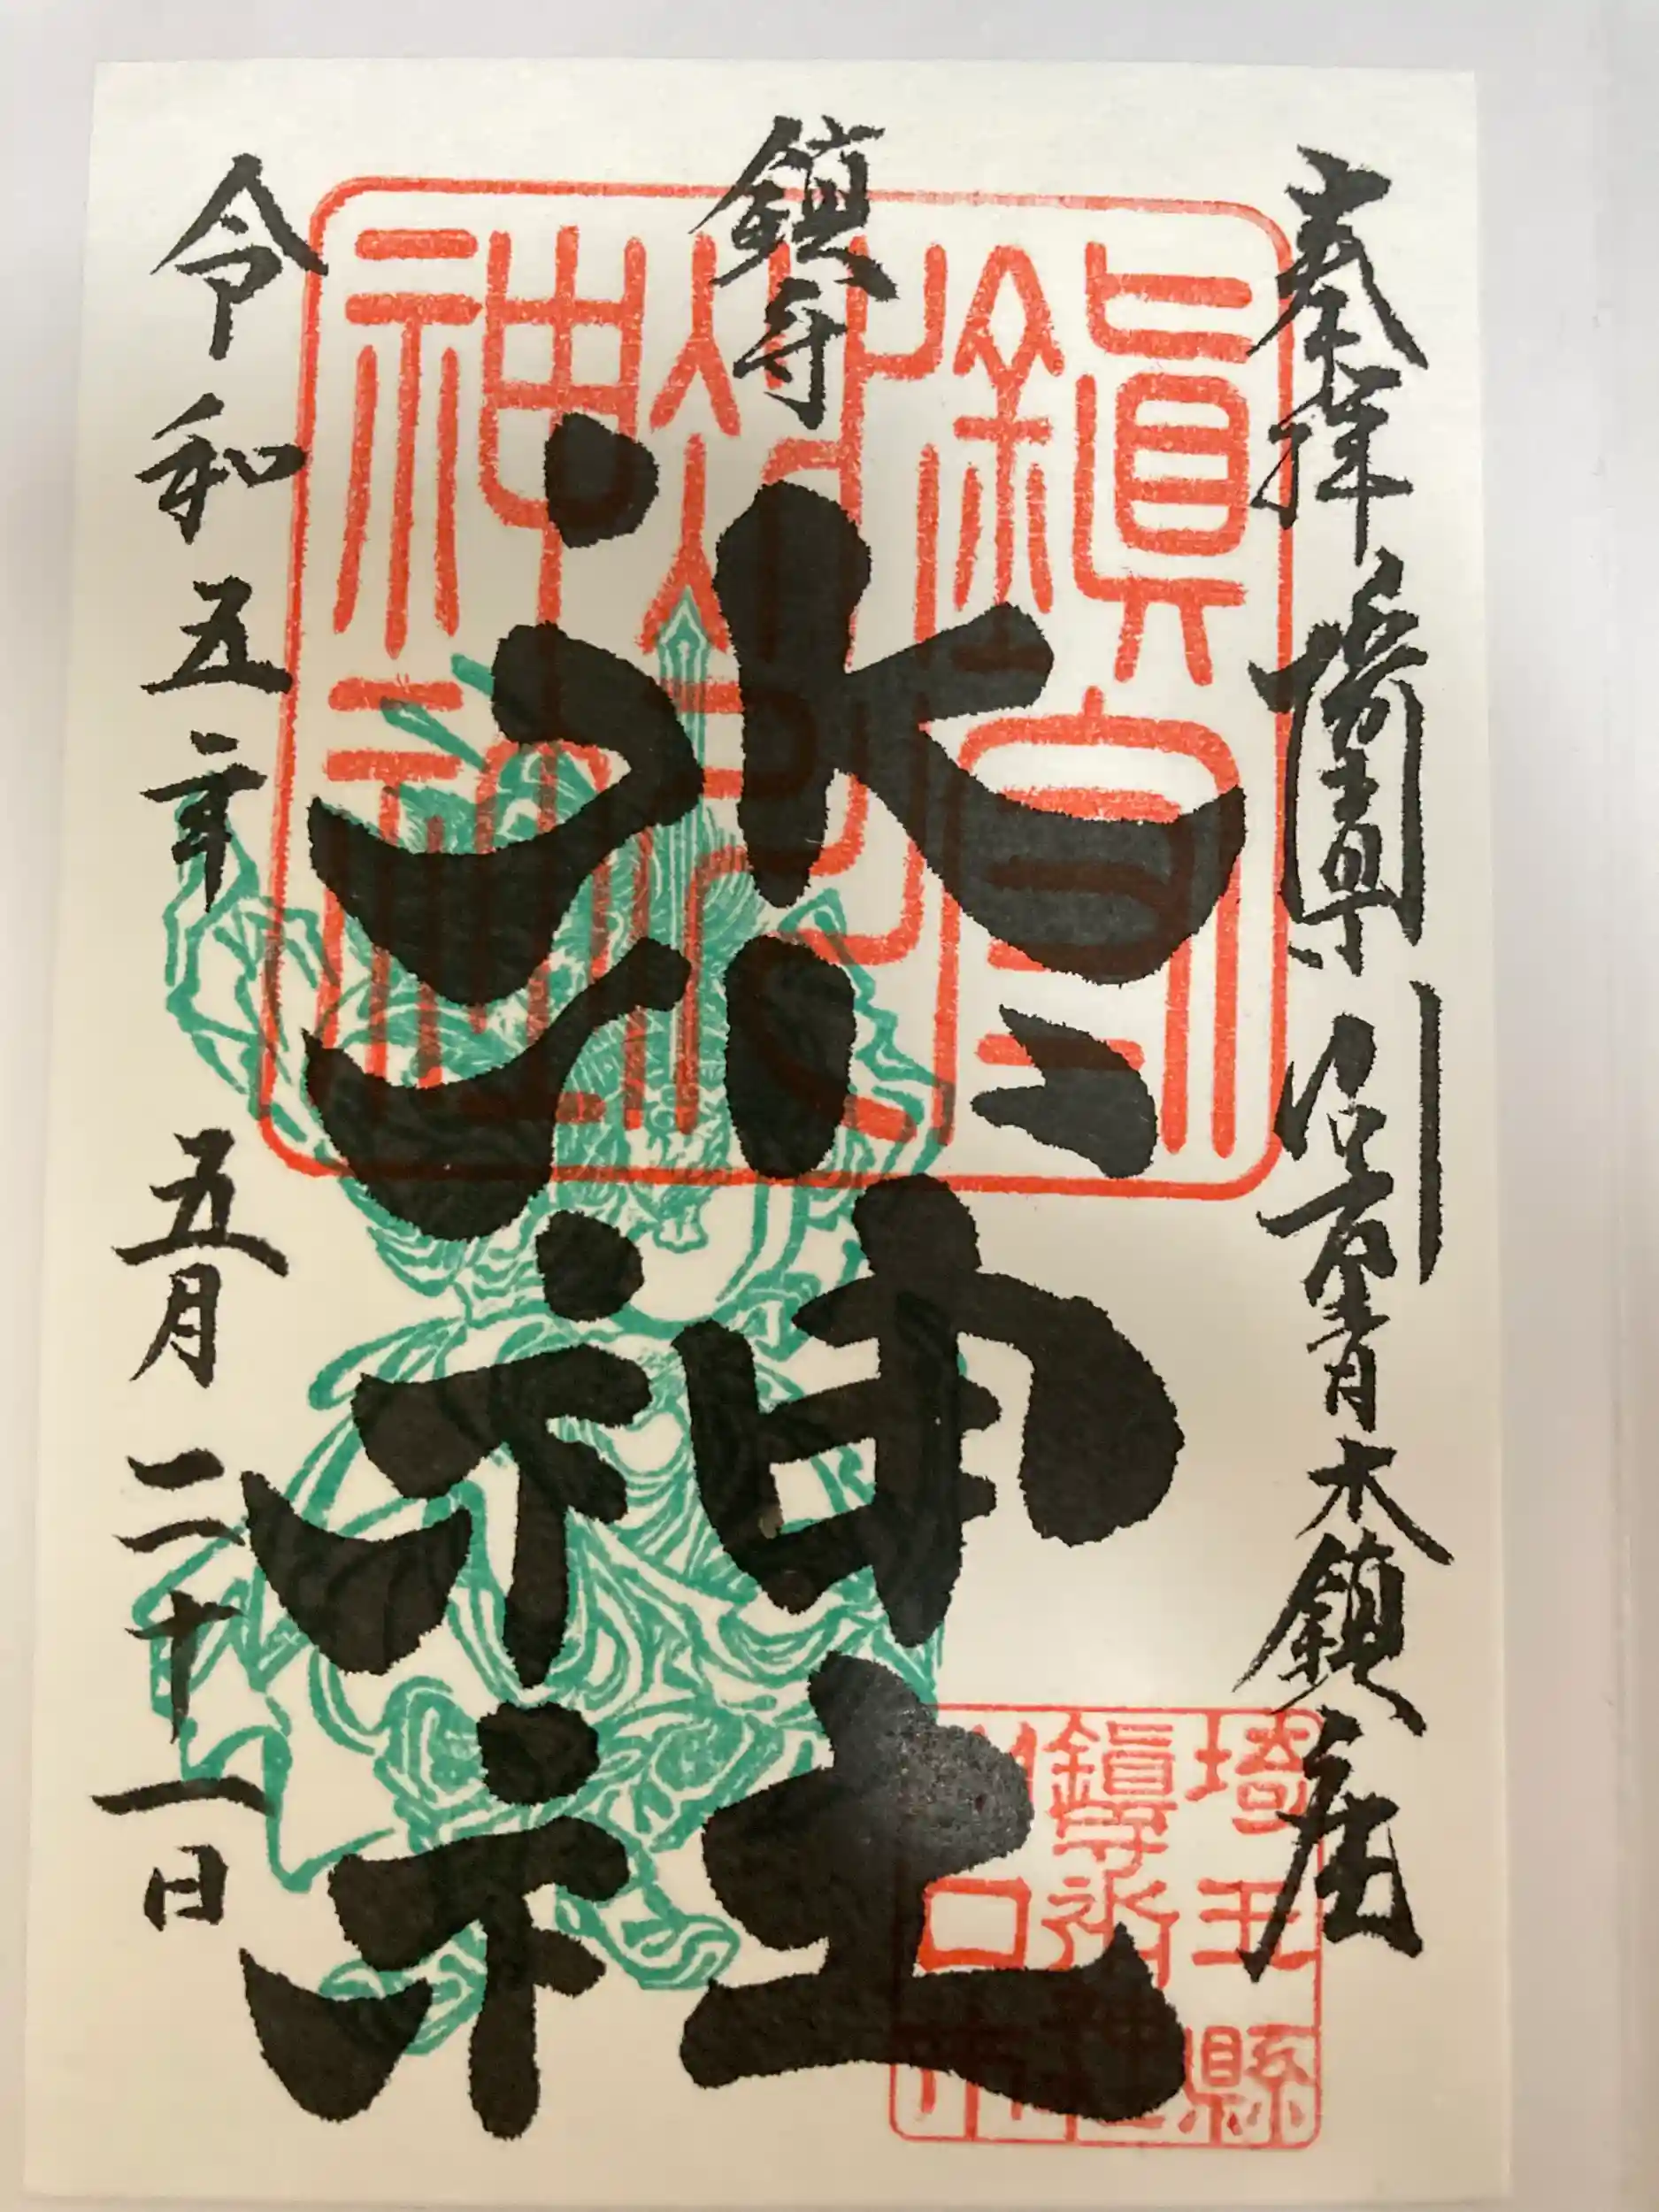 奉拝 埼玉県川口市青木鎮座
鎮守
氷神社
令和五年 五月 二十一日
鎮守
氷川
神社
埼玉縣
鎮守氷川神社
川口市